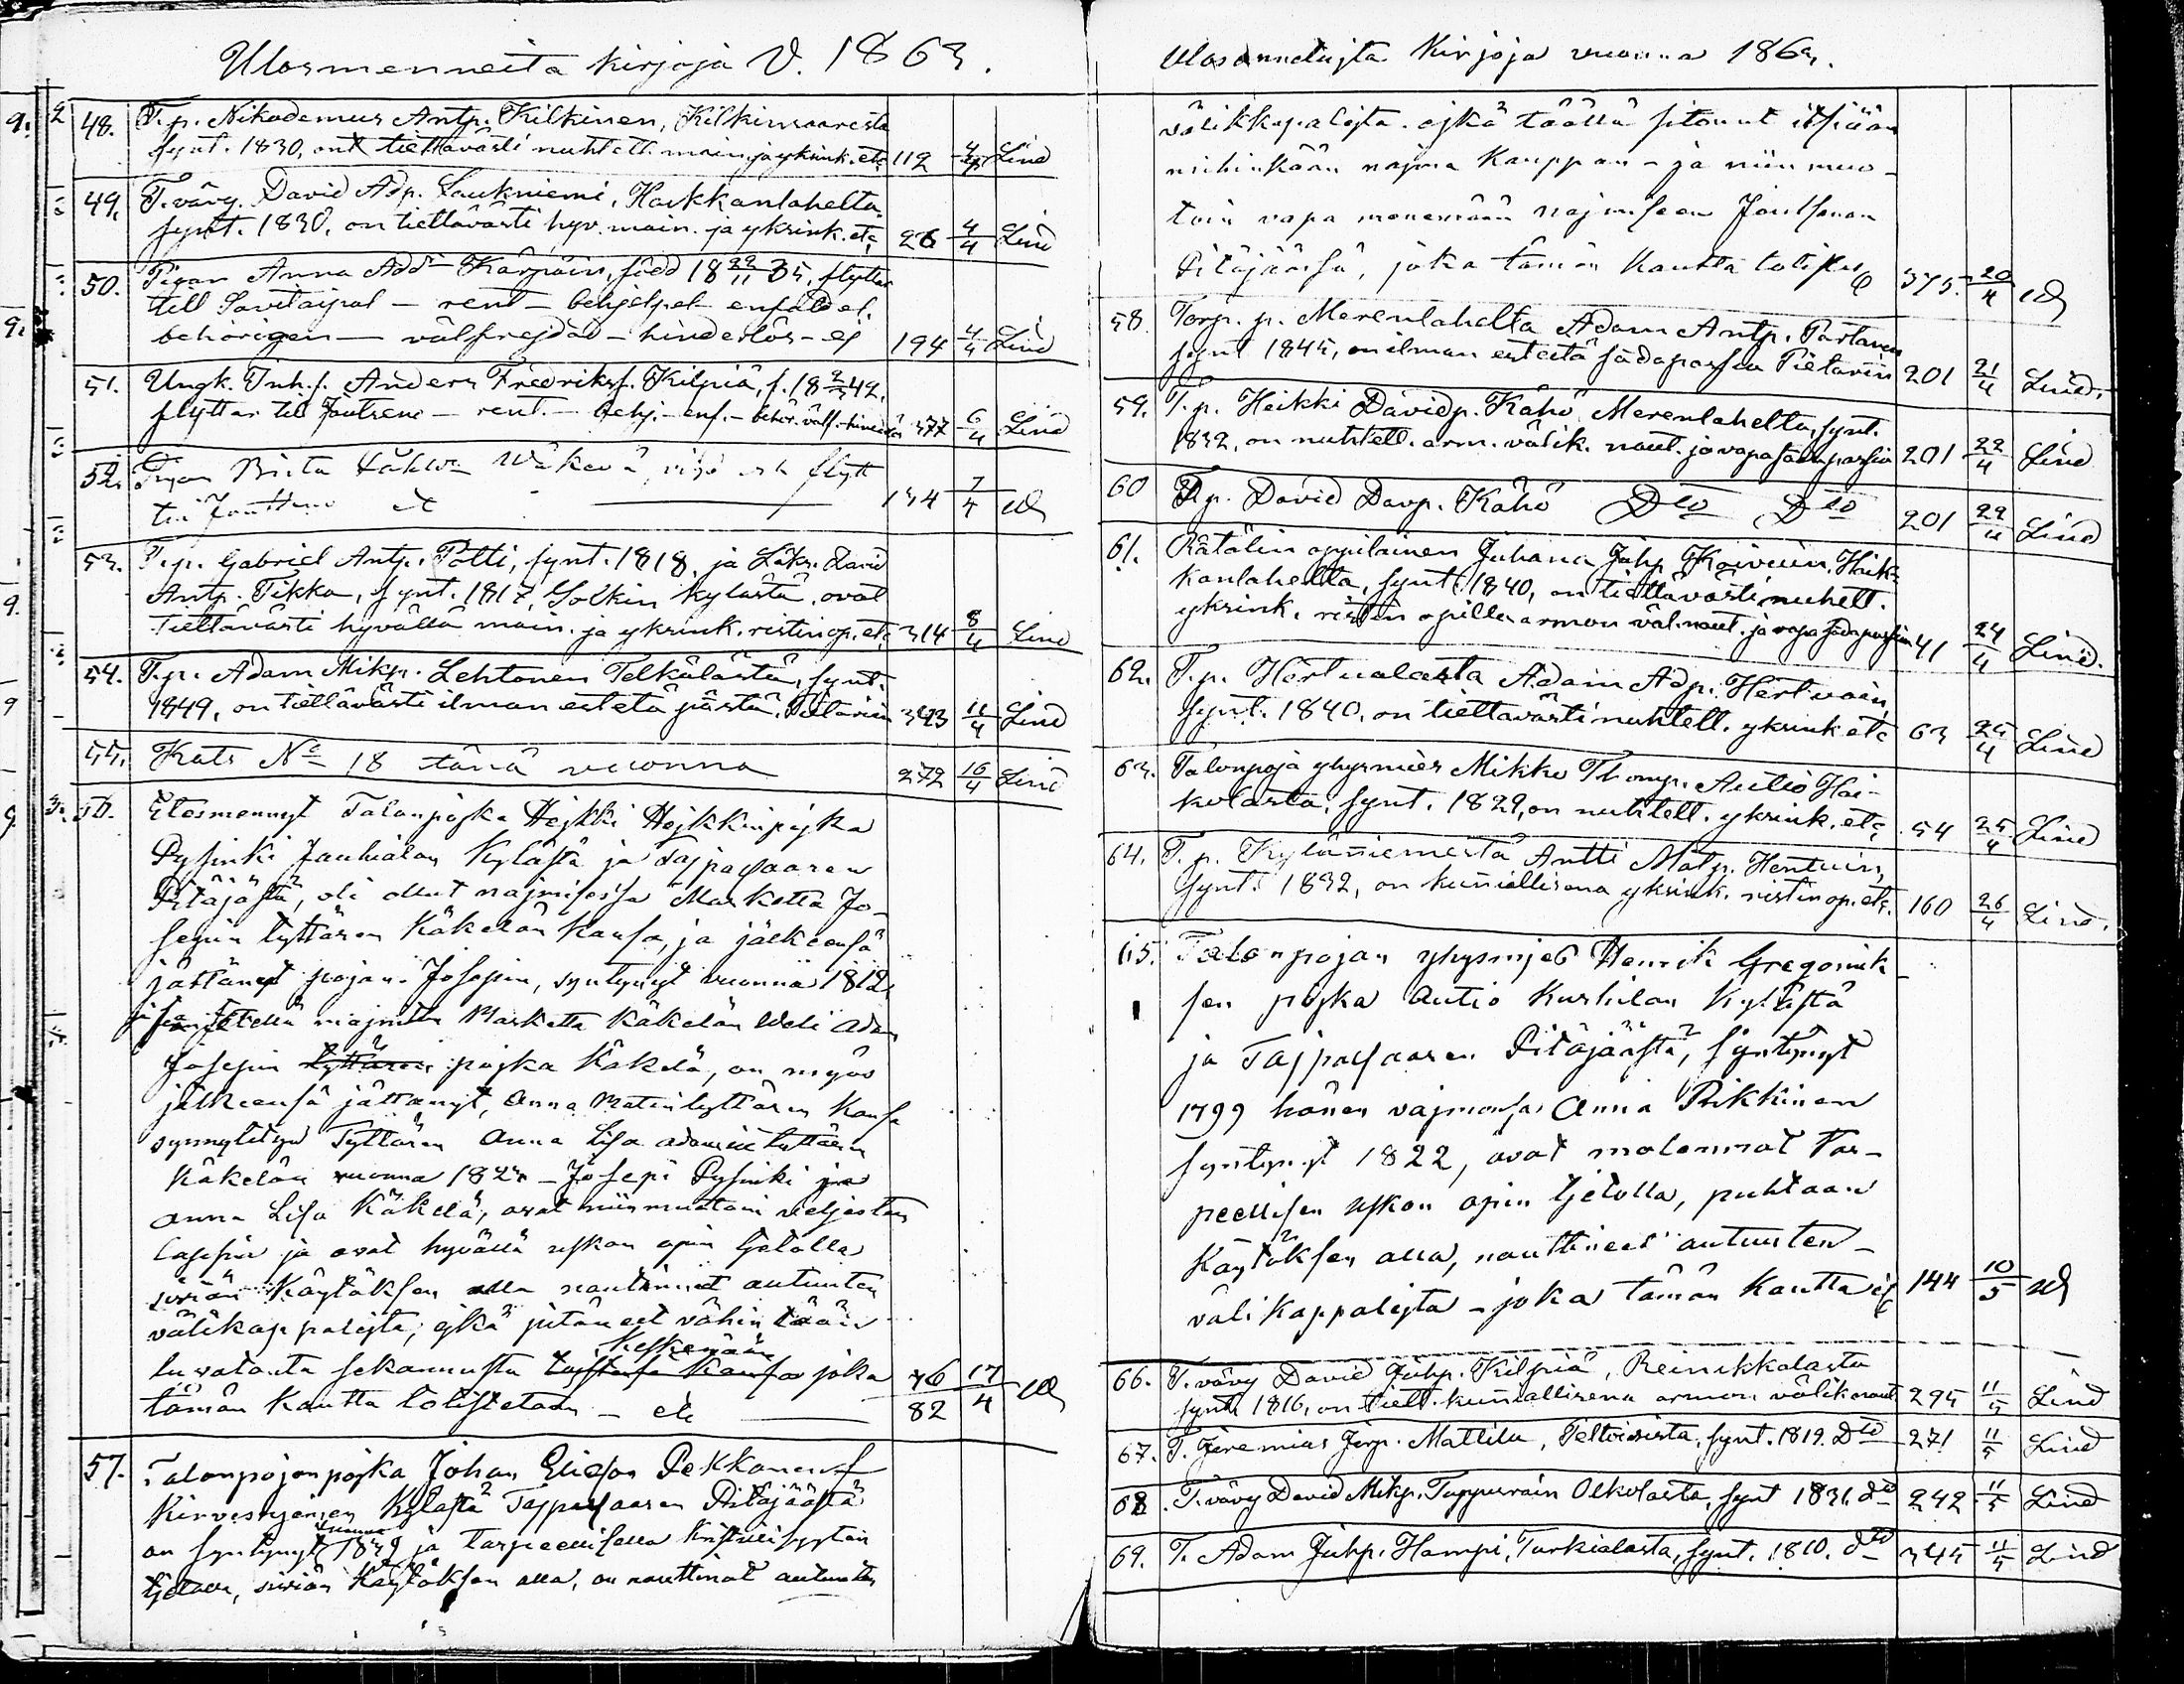 Ulosmenneitä kirjoja V. 1863.
48. T.p. Nikodemus Antp. Kilkinen, Kilkinsaaresta
synt. 1830, on tiettävästi nuhtett. main. ja yksink. etc 112 Lind
49. T. vävy. David Adp. Laukniemi, Haikkanlahelta.
synt. 1830, on tiettävästi hyv. main. ja yksink. etc 26 4/4 Lind
50. Pigan Anna Add:r Kärpäin, född 18 22/11 35, flyttar
till Savitaipal – rent – behjelpel. enfald el.
behörigen – välfrejdad – hinderlös – ej 194 4/4 Lind
51. Ungk. Inh.s. Anders Fredriks. Kilpiä, f. 18 42.
flyttar till Joutseno – rent. – behj. – enf. – behör. välf. – hinderlös 377 6/4 Lind
52. Pigan Brita flytt
till Joutseno etc 134 7/4
53. T.p. Gabriel Antp. Potti, synt. 1818, ja Läks. David
Antp. Tikka, synt. 1817, Solkin kylästä, ovat
tiettävästi hyvällä main. ja yksink. ristinop. etc 314 8/4 Lind
54. T.p. Adam Mikp. Lehtonen Telkälästä, synt.
1849, on tiettävästi ilman estetä pästä. Pietariin 343 11/4 Lind
55. Kats No 18 tänä vuonna 272 16/4 Lind
56. Ulosmennyt Talonpojka Hejkki Hejkkinpojka
Pysinki Jauhialan Kylästä ja Tajpalsaaren
Pitäjästä, oli ollut najmisessa Marketta Jo-
sepin tyttären Käkelän kansa, ja jälkeensä
jättänyt pojan Josepin, syntynyt vuonna 1812,
ja najmittu Marketta Käkelän Weli Adam
Josepin tyttären pojka Käkelä, on myös
jälkeensä jättänyt, Anna Matintyttären kansa
synnytetyn Tyttären Anna Lisa Adamin tyttären
Käkelän vuonna 182 – Josepi Pysinki ja
Anna Lisa Käkelä, ovat niinmuotoin veljesten
lapsia ja ovat hyvällä uskon opin tjetolla
sivian Käytöksen alla nauttineet autuuten
välikappalejta, ejkä
keskenään
sekannusta kansa joka
tämän kautta totistetaan – etc 76/82 17/4
57. Talonpojan pojka Johan Eliass. Pekkanen
Kirvesvjemen Kylästä Tajpalsaaren Pitäjäästä
vuonna
on syntynyt 1839 ja tarpeellisella kristillisyytän
tjetolla, sivian Käytöksen alla, on nauttinut autuuten
Ulosannetujta Kirjoja vuonna 1863.
välikkapalejta. ejkä täällä sitonut itsiään
mihinkään najma kauppaan – ja niin muo-
toin vapa menemään najmiseen Joutsenon
Pitäjäässä, joka tämän kautta totist. 375. 20/4
58. Torp. p. Merenlahelta Adam Antp. Partanen
synt 1845, on ilman esteitä sadapassia Pietariin 201 21/4 Lind.
59. T.p. Heikki Davidp. Kähö, Merenlahelta, synt.
1832, on nuhtett. arm. välik. naut. ja vapa saan passia 201 22/4 Lind
60 T.p. David Davp. Kähö Dto Dto 201 22/4 Lind
61. Rätälin oppilainen Juhana Juhp. Koivuin, Haik-
kanlahelta, synt. 1840, on tiettävästi nuhett.
yksink. ristin opilla armon väl. naut. ja vapa sada passia 41 24/4 Lind.
62. T.p. Hertualasta Adam Adp. Hertuain,
synt. 1840, on tiettävästi nuhtett. yksink etc 63 25/4 Lind
63. Talonpoja yhysmies Mikko Thomp. Autio Hai-
kolasta, synt. 1829, on nuhtett. yksink. etc 54 25/4 Lind
64. T.p. Kyläniemestä Antti Matp. Hentuin,
synt. 1832, on kunniallisena yksink. ristinop. etc. 160 26/4 Lind.
65. Talonpojan yhysmjes Henrik Gregorink-
sen pojka Autio Kurhilan Kylästä
ja Tajpalsaaren Pitäjäästä, syntynyt
1799 hänen vajmonsa Anna Pikkinen
syntynyt 1822, ovat molemmat Tar-
peellisen uskon opin tjetolla, puhtaan
Käytöksen alla, nauttineet autuuten-
välikappalejta – joka tämän kautta 144 10/5
66. T. vävy David Juhp. Kilpiä, Reinikkalasta
synt. 1816, on tiett. kunniallisena armon välik. naut. 295 11/5 Lind
67. T. Jeremias Jerp. Mattila, Peltoisista, synt. 1819. Dto 271 11/5 Lind
68. T. vävy David Mikp. Tuppurain Olkolasta, synt 1831. dto 242 11/5 Lind
69. T. Adam Juhp. Hampi, Turkialasta, synt. 1810. dto 345 11/5 Lind